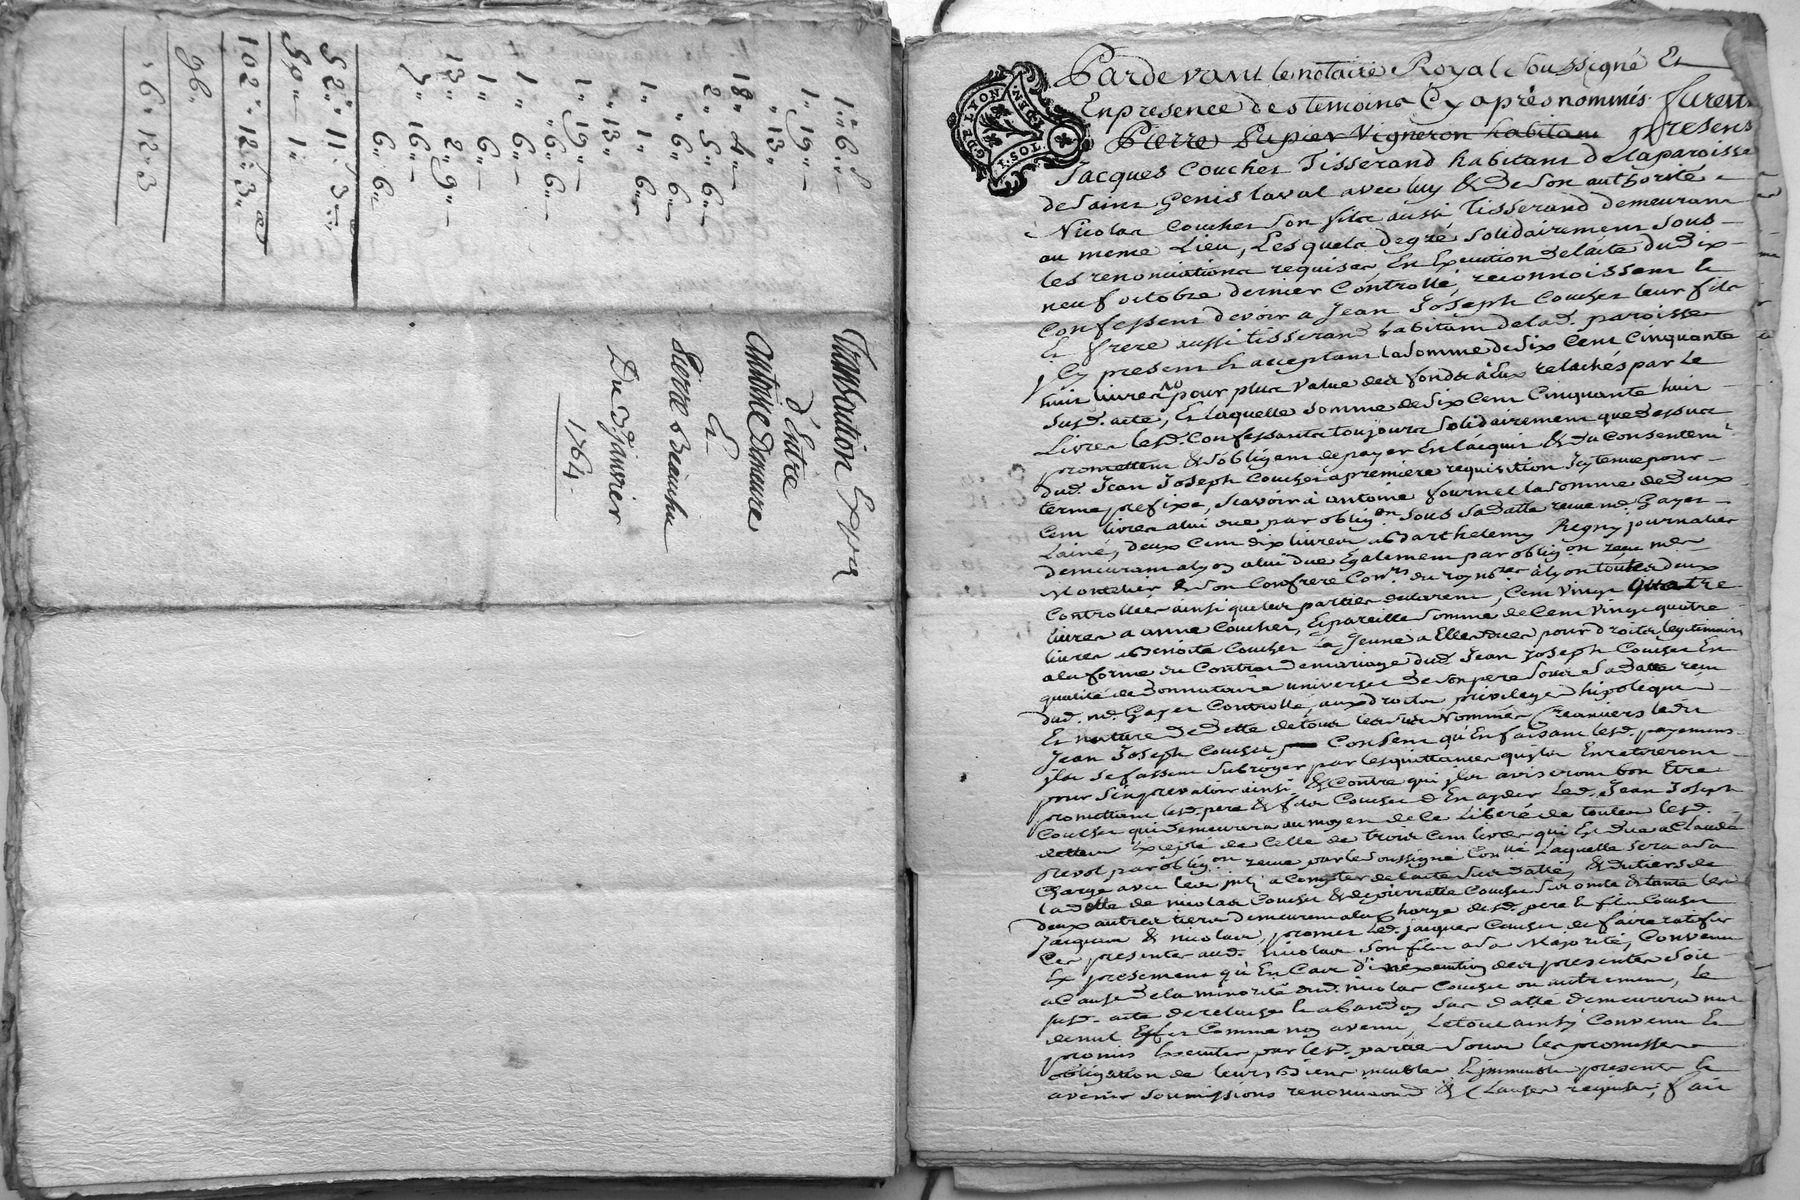 1" 6" "
1" 19" "
" 13"
18" 4" "
2" 5" 6"
" 6" 6"
1" 1" 6"
" 13"
1" 19" "
" 6" 6"
1" 6"
1" 6"
13" 2" 9"
3" 16"
6" 6"
52" 11" 3"
50" 1"
102" 12" 3"
96"
" 6" 12" 3
Transaction
d'Entre
Antoine
Et
Pierre
Du janvier
1764
GÉN. DE LYON
Pardevant le notaire Royal soussigné Et
En presence des temoins Cy après nommés furent
Pierre Papier Vigneron habitant presens
Jacques Coucher Tisserand habitant de la paroisse
de Saint Genis laval avec luy & de Son authorité
Nicolas Coucher Son fils aussi Tisserand demeurant
au meme Lieu, Lesquels de gré Solidairement Sous
les renonciations requises, En Execution de lacte du dix
neuf octobre dernier Controllé, reconnoissent &
Confessent devoir a Jean Joseph Coucher leur fils
Et frere aussi tisserand habitant de lad. paroisse
Cy present & acceptant la Somme de Six Cent Cinquante
huit livres pour plus Value des fonds a Eux relachés par le
Susd. acte, Et laquelle Somme de Six Cent Cinquante huit
Livres lesd. Confessants toujours Solidairement que dessus
promettent & S'obligent de payer En l'acquit & du Consentemt.
dud. Jean Joseph Coucher a premiere requisition Icy tenue pour
terme prefixe, Scavoir a antoine fournel la Somme de deux
Cent livres a lui due par oblig.on Sous Sa datte reçue me. Gayet
Lainé, deux Cent dix livres a Barthelemy Regny journalier
demeurant a lyon a lui due Egalement par oblig.on reçue me.
Montelier & Son Confrere Con.rs du roy no.res a lyon toutes deux
Controllées ainsi que les parties declarent, Cent Vingt quatre
livres a anne Coucher, Et pareille Somme de Cent Vingt quatre
livres a Benoite Coucher la Jeune a Elles dues pour droits legitimaires
a la forme du Contrat de mariage dud. Jean Joseph Coucher En
qualité de donnataire universel de Son pere Sous Sa datte reçu
dud. me. Gayet Controllé, aux droits privilege hipoteque
Et nature de dette de tous lesd. Nommés Creanciers led.
Jean Joseph Coucher Consent qu'En faisant lesd. payemens
ils Se fassent Subroger par les quittances qu'ils En retireront
pour S'en prevaloir ainsi & Contre qui ils aviseront bon Etre
promettant lesd. pere & fils Coucher d'En ayder led. Jean Joseph
Coucher qui demeurera au moyen de Ce Liberé de toutes lesd.
dettes Excepté de Celle de trois Cent livres qui Est due a Claude
prevot par oblig.on reçue par le Soussigné Con.llé Laquelle Sera a Sa
Charge avec les a Compter de lacte Sus datté, & du tiers de
la dette de nicolas Coucher & de pierrette Coucher les
deux autres tiers demeurent a la Charge desd. pere & fils Coucher
Jacques & nicolas, promet led. jacques Coucher de faire ratifier
Ces presentes aud. Nicolas Son fils a Sa Majorité, Convenu
Expressement qu'En Cas d'inexecution des presentes Soit
a Cause de la minorité dud. nicolas Coucher ou autrement, le
Susd. acte de & abandon Sus datté demeurera nul
de nul Effet Comme non avenu, Le tout ainsy Convenu &
promis Executer par lesd. parties Sous les promesses
obligation de leurs biens meubles & immeubles presents &
avenir Soumissions renonciations & Clauses requises, fait